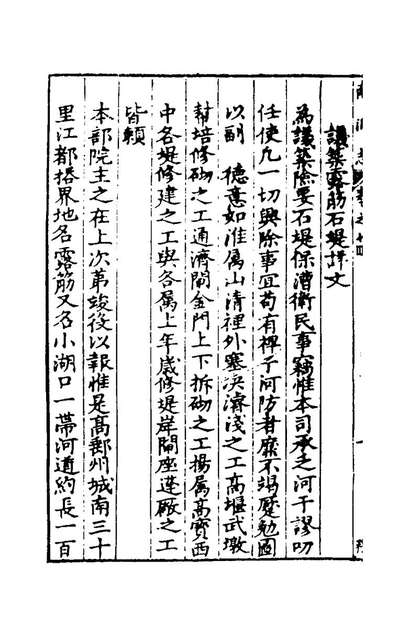 議築露筋石堤詳文
為議築險要石堤保漕衛民事竊惟本司承乏河干謬叨
任使凡一切興除事宜苟有裨于河防者靡不竭蹷勉圖
以副 德意如淮属山清裡外塞決濬淺之工高堰武墩
幫培修砌之工通濟閘金門上下拆砌之工揚属高寳西
中各堤修建之工與各属上年歲修堤岸閘座蓬厰之工
皆賴
本部院主之在上次第竣役以報惟是高郵州城南三十
里江都接界地名露筋又名小湖口一帶河道約長一百